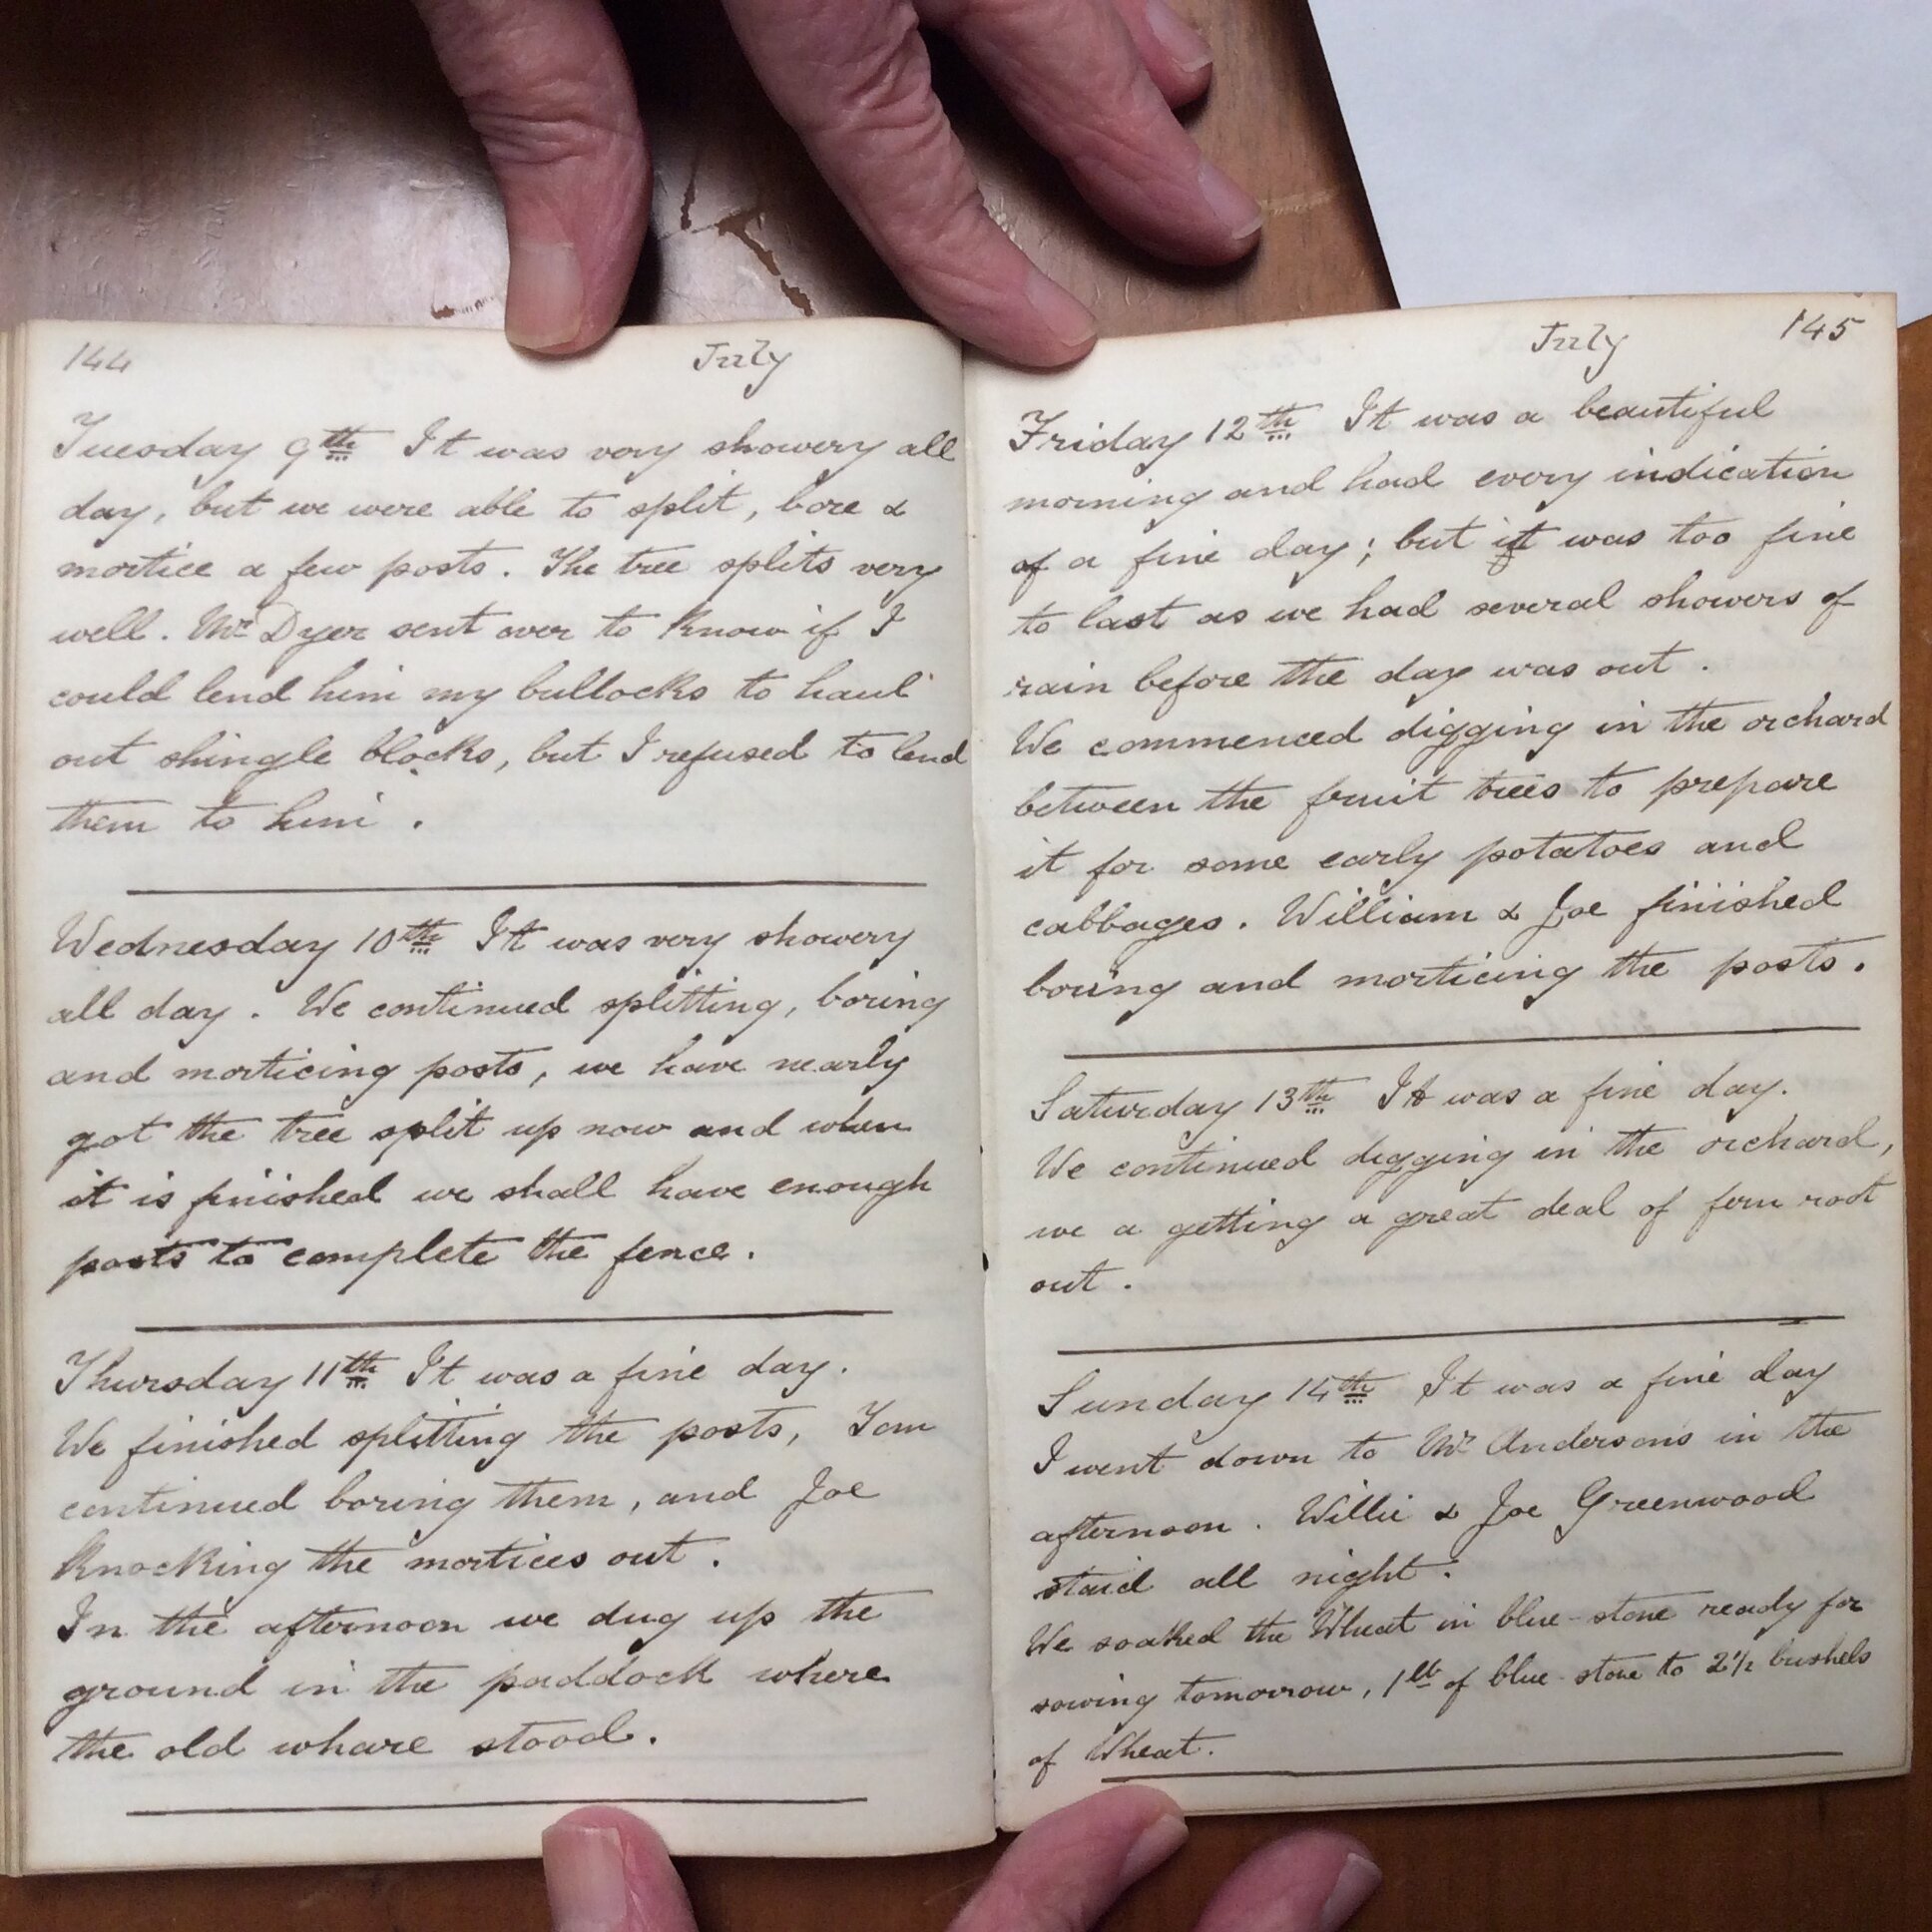 144 July
Tuesday 9th It was very showery all
day, but we were able to split, bore &
mortice a few posts. The tree splits very
well. Mr Dyer sent over to know if I
could lend him my bullocks to haul
out shingle blocks, but I refused to lend
them to him.
Wednesday 10th It was very showery
all day. We continued splitting, boring
and morticing posts, we have nearly
got the tree split up now and when
it is finished we shall have enough
posts to complete the fence.
Thursday 11th It was a fine day.
We finished splitting the posts, Tom
continued boring them, and Joe
knocking the mortices out.
In the afternoon we dug up the
ground in the paddock where
the old whare stood.
July 145
Friday 12th It was a beautiful
morning and had every indication
of a fine day; but it was too fine
to last as we had several showers of
rain before the day was out.
We commenced digging in the orchard
between the fruit trees to prepare
it for some early potatoes and
cabbages. William & Joe finished
boring and morticing the posts.
Saturday 13th It was a fine day.
We continued digging in the orchard,
we a getting a great deal of fern root
out.
Sunday 14th It was a fine day
I went down to Mr Andersons in the
afternoon. Willie & Joe Greenwood
staid all night.
We soaked the Wheat in blue-stone ready for
sowing tomorrow, 1lb of blue-stone to 2½ bushels
of Wheat.